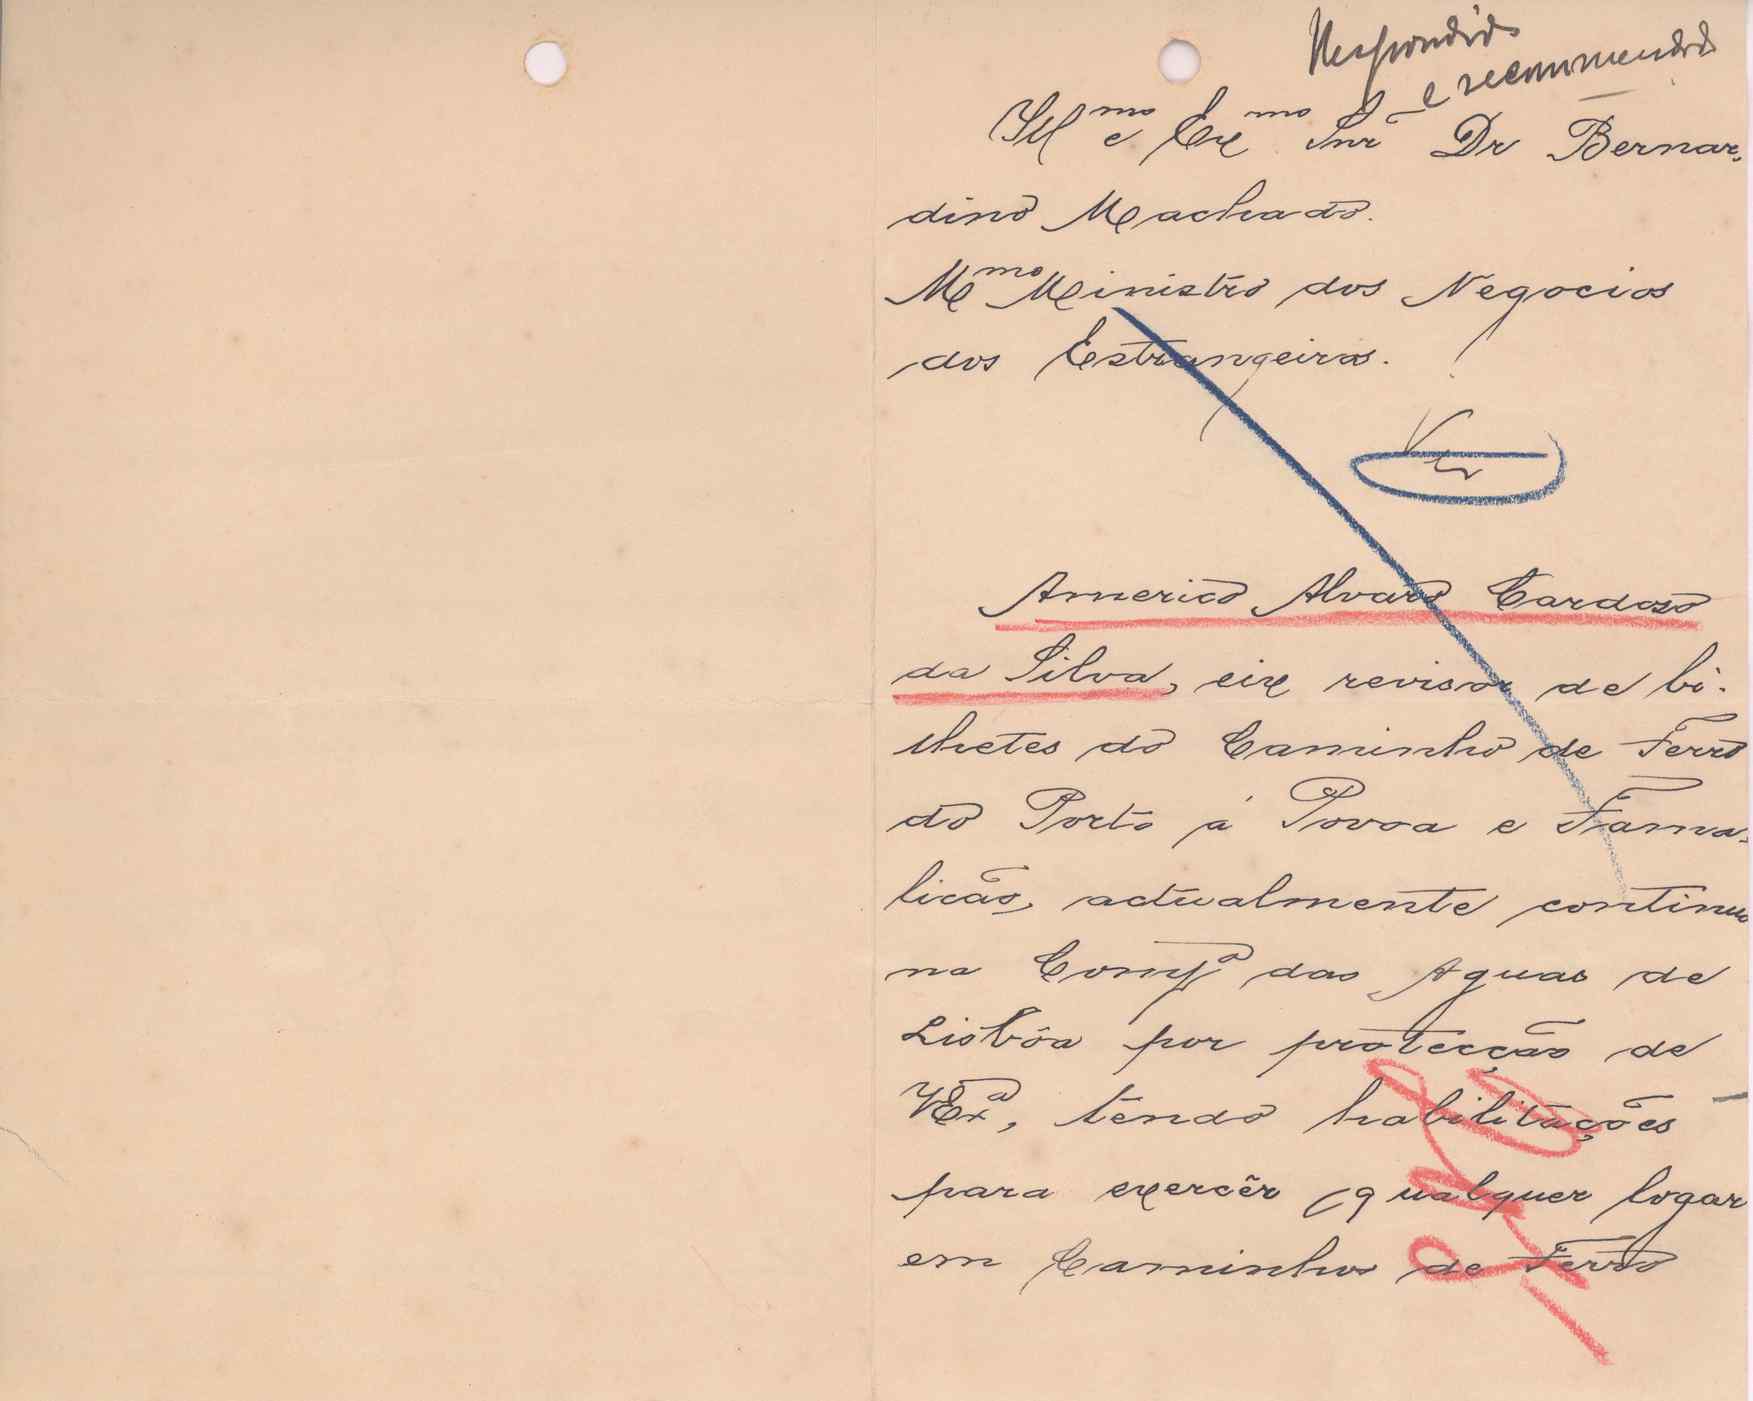 Respondido
e recommendado
Illmo e Exmo Snr Dr Bernar-
dino Machado.
M.mo Ministro dos Negocios
dos Estrangeiros.
Ver
Americo Alvaro Cardoso
da Silva, eix revisor de bi-
lhetes do Caminho de Ferro
do Porto á Povoa e Fama-
licão, actualmente continuo
na Compª das Aguas de
Lisbôa por protecção de
VExª, tendo habilitações
para exercêr qualquer logar
em Caminhos de Ferro